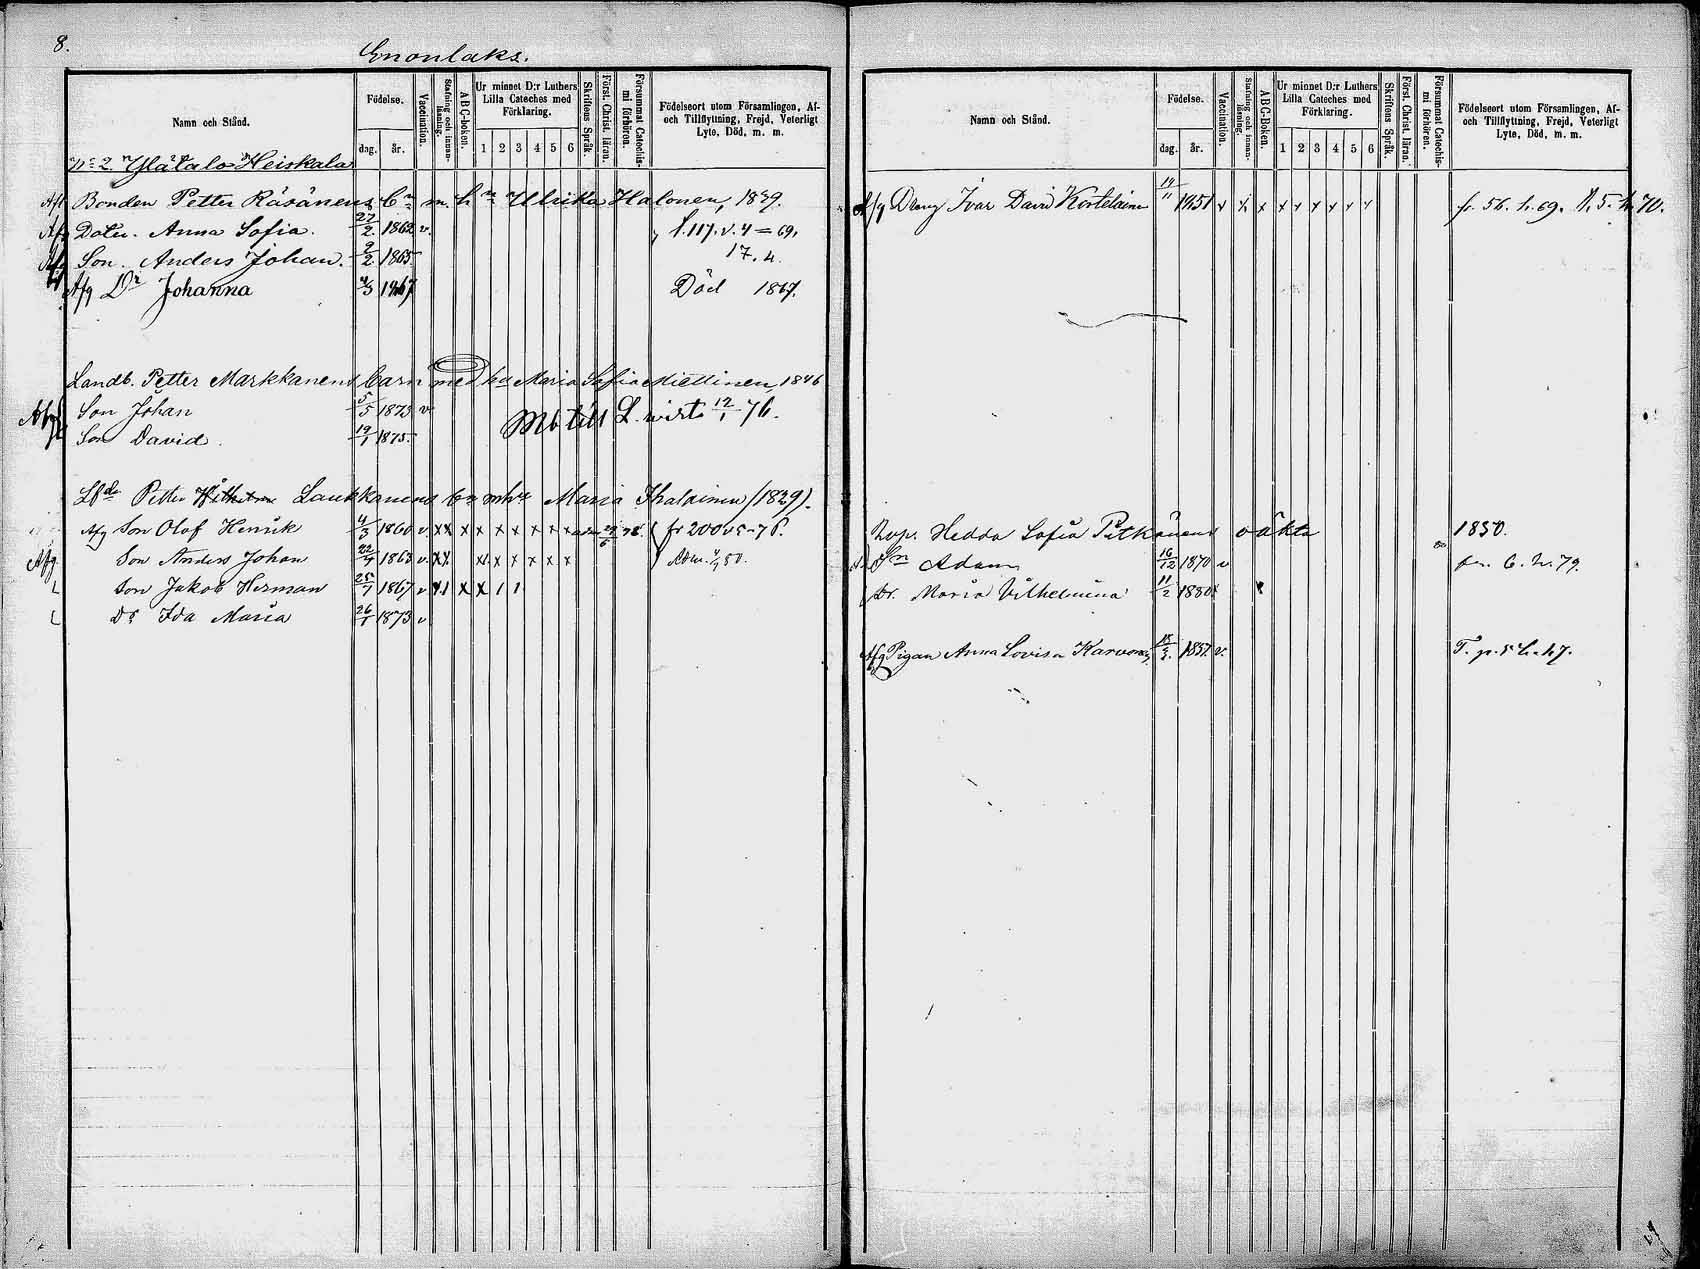 8.
Enonlaks.
Namn och Stånd.
Födelse.
dag. år.
Vaccination.
Stafning och innanläsning.
ABC-boken.
Ur minnet D:r Luthers Lilla Cateches med Förklaring.
1 2 3 4 5 6
Skriftens Språk.
Först. Christ. läran.
Försummat Catechismi förhören.
Födelseort utom Församlingen, Af- och Tillflyttning, Frejd, Veterligt Lyte, Död, m. m.
N:o 2 Ylätalo Heiskala
Afg Bonden Petter Räsänens Bn m. hn Ulrika Halonen, 1839.
Afg Doter. Anna Sofia. 27/2 1862 v. f. 117. v. 4 = 69.
Afg Son. Anders Johan. 9/2 1865 17. 4.
Afg Dr Johanna 4/3 1867 Död 1867.
Landb. Petter Markkanens barn med ha Maria Sofia Miettinen, 1846
Afg Son Johan 5/5 1873 v Mb till L. wirta 12/1 76.
Son David 19/1 1875
Lbde Petter Laukkanens bn mhu Maria Ihalainen (1829).
Afg Son Olof Henrik 4/3 1860 v. x x x x x x x x x adm 29/6 78. fr 200 v 5-76.
Afg. Son Anders Johan 22/7 1863 v. x x x x x x x x
Son Jakob Herman 25/7 1867 v x 1 x x 1 1
Dr Ida Maria 26/1 1873 v
Namn och Stånd.
Födelse.
dag. år.
Vaccination.
Stafning och innanläsning.
ABC-Boken.
Ur minnet D:r Luthers Lilla Cateches med Förklaring.
1 2 3 4 5 6
Skriftens Språk.
Först. Christ. läran.
Försummat Catechismi förhören.
Födelseort utom Församlingen, Af- och Tillflyttning, Frejd, Veterligt Lyte, Död, m. m.
Afg Dreng Ivar David Kortelainen 14/11 1851 v x x x x x x x x fr. 56. h. 69. f. 5. h. 70.
Inp. Hedda Sofia Pitkänens oäkta 1850.
Sn Adam 16/12 1870 v
Dr. Maria Vilhelmina 11/2 1880
Afg Pigan Anna Lovisa Karvonen 18/3. 1857. v. T. p. 5 h. 47.